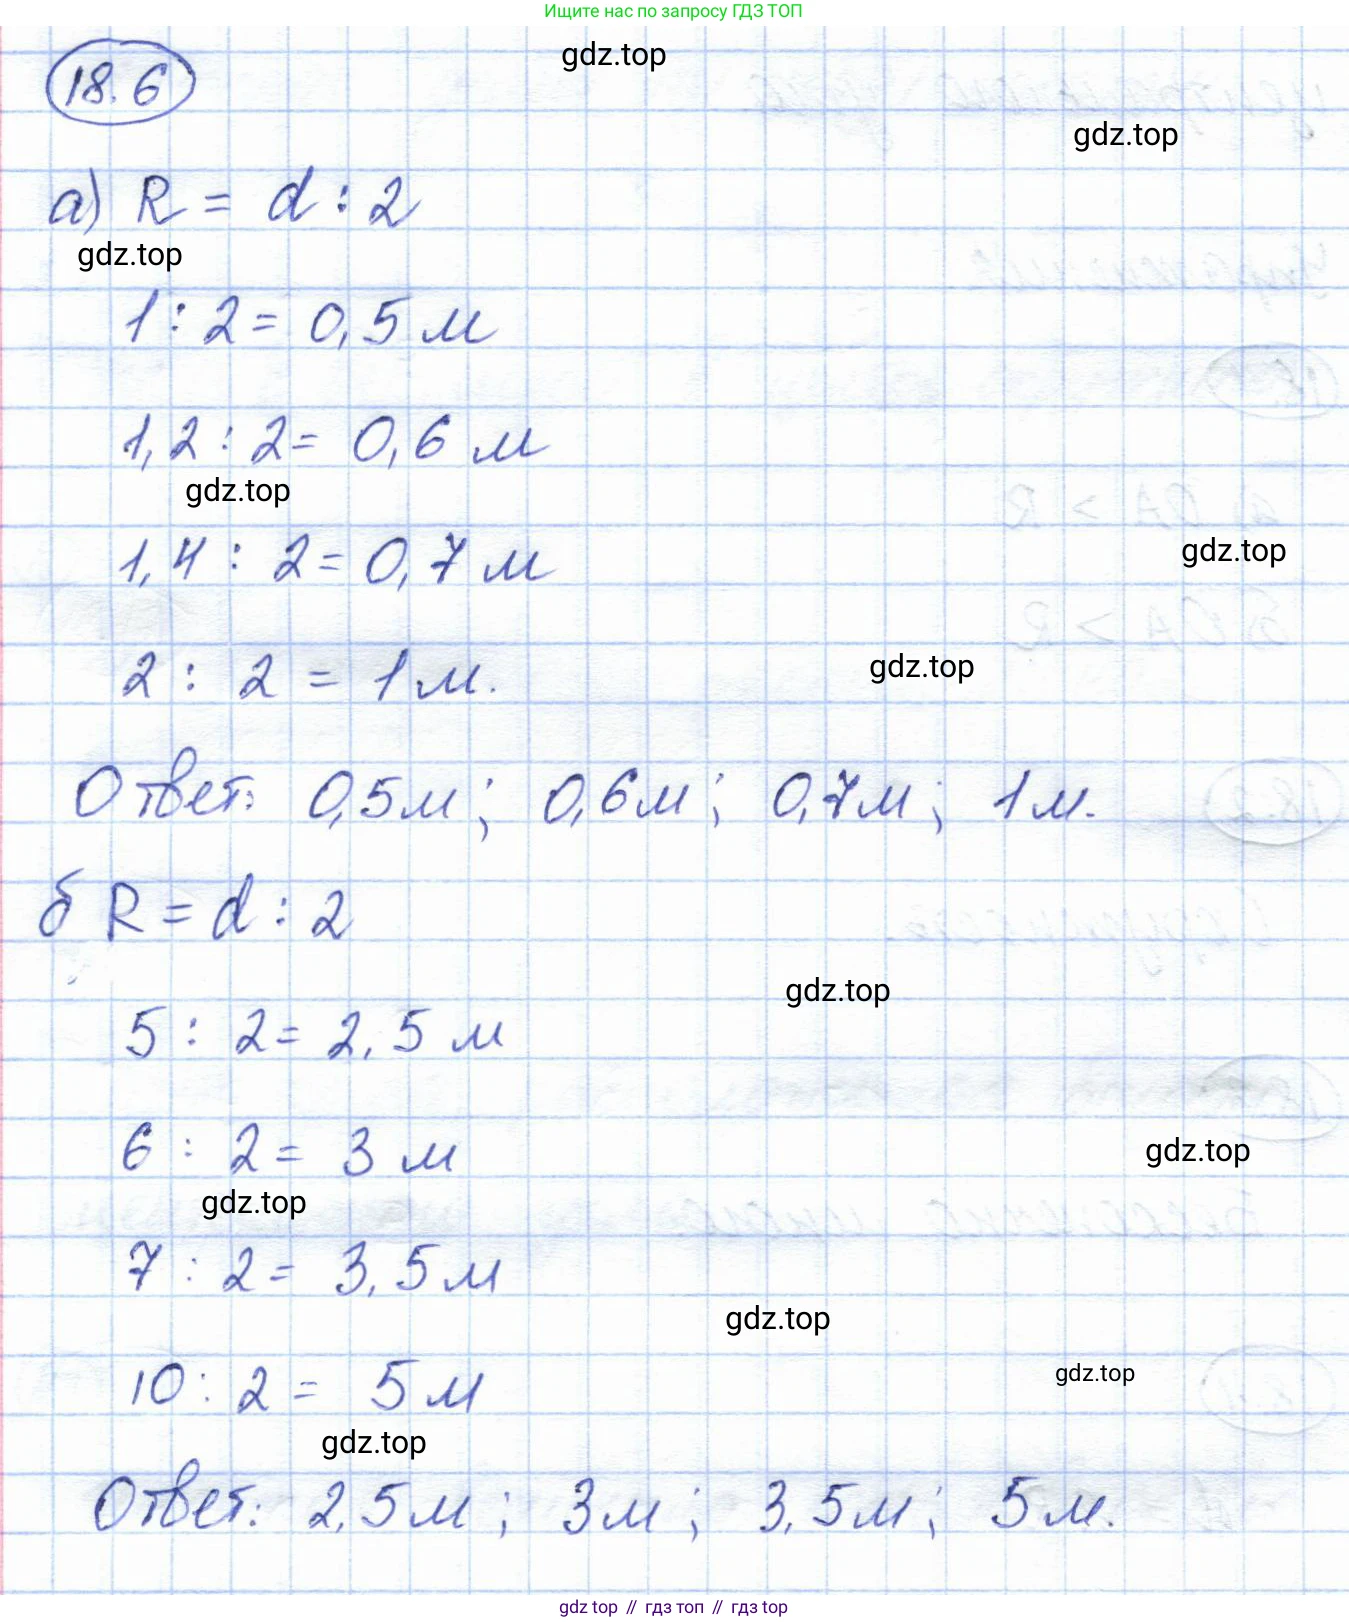 Ищите нас по запросу ГДЗ ТОП
gdz.top
18.6
gdz.top
а) R = d : 2
gdz.top
1 : 2 = 0,5 м
1,2 : 2 = 0,6 м
gdz.top
1,4 : 2 = 0,7 м
gdz.top
2 : 2 = 1 м.
gdz.top
Ответ: 0,5 м; 0,6 м; 0,7 м; 1 м.
б R = d : 2
gdz.top
5 : 2 = 2,5 м
6 : 2 = 3 м
gdz.top
gdz.top
7 : 2 = 3,5 м
gdz.top
10 : 2 = 5 м
gdz.top
gdz.top
Ответ: 2,5 м; 3 м; 3,5 м; 5 м.
gdz top // гдз топ // гдз top